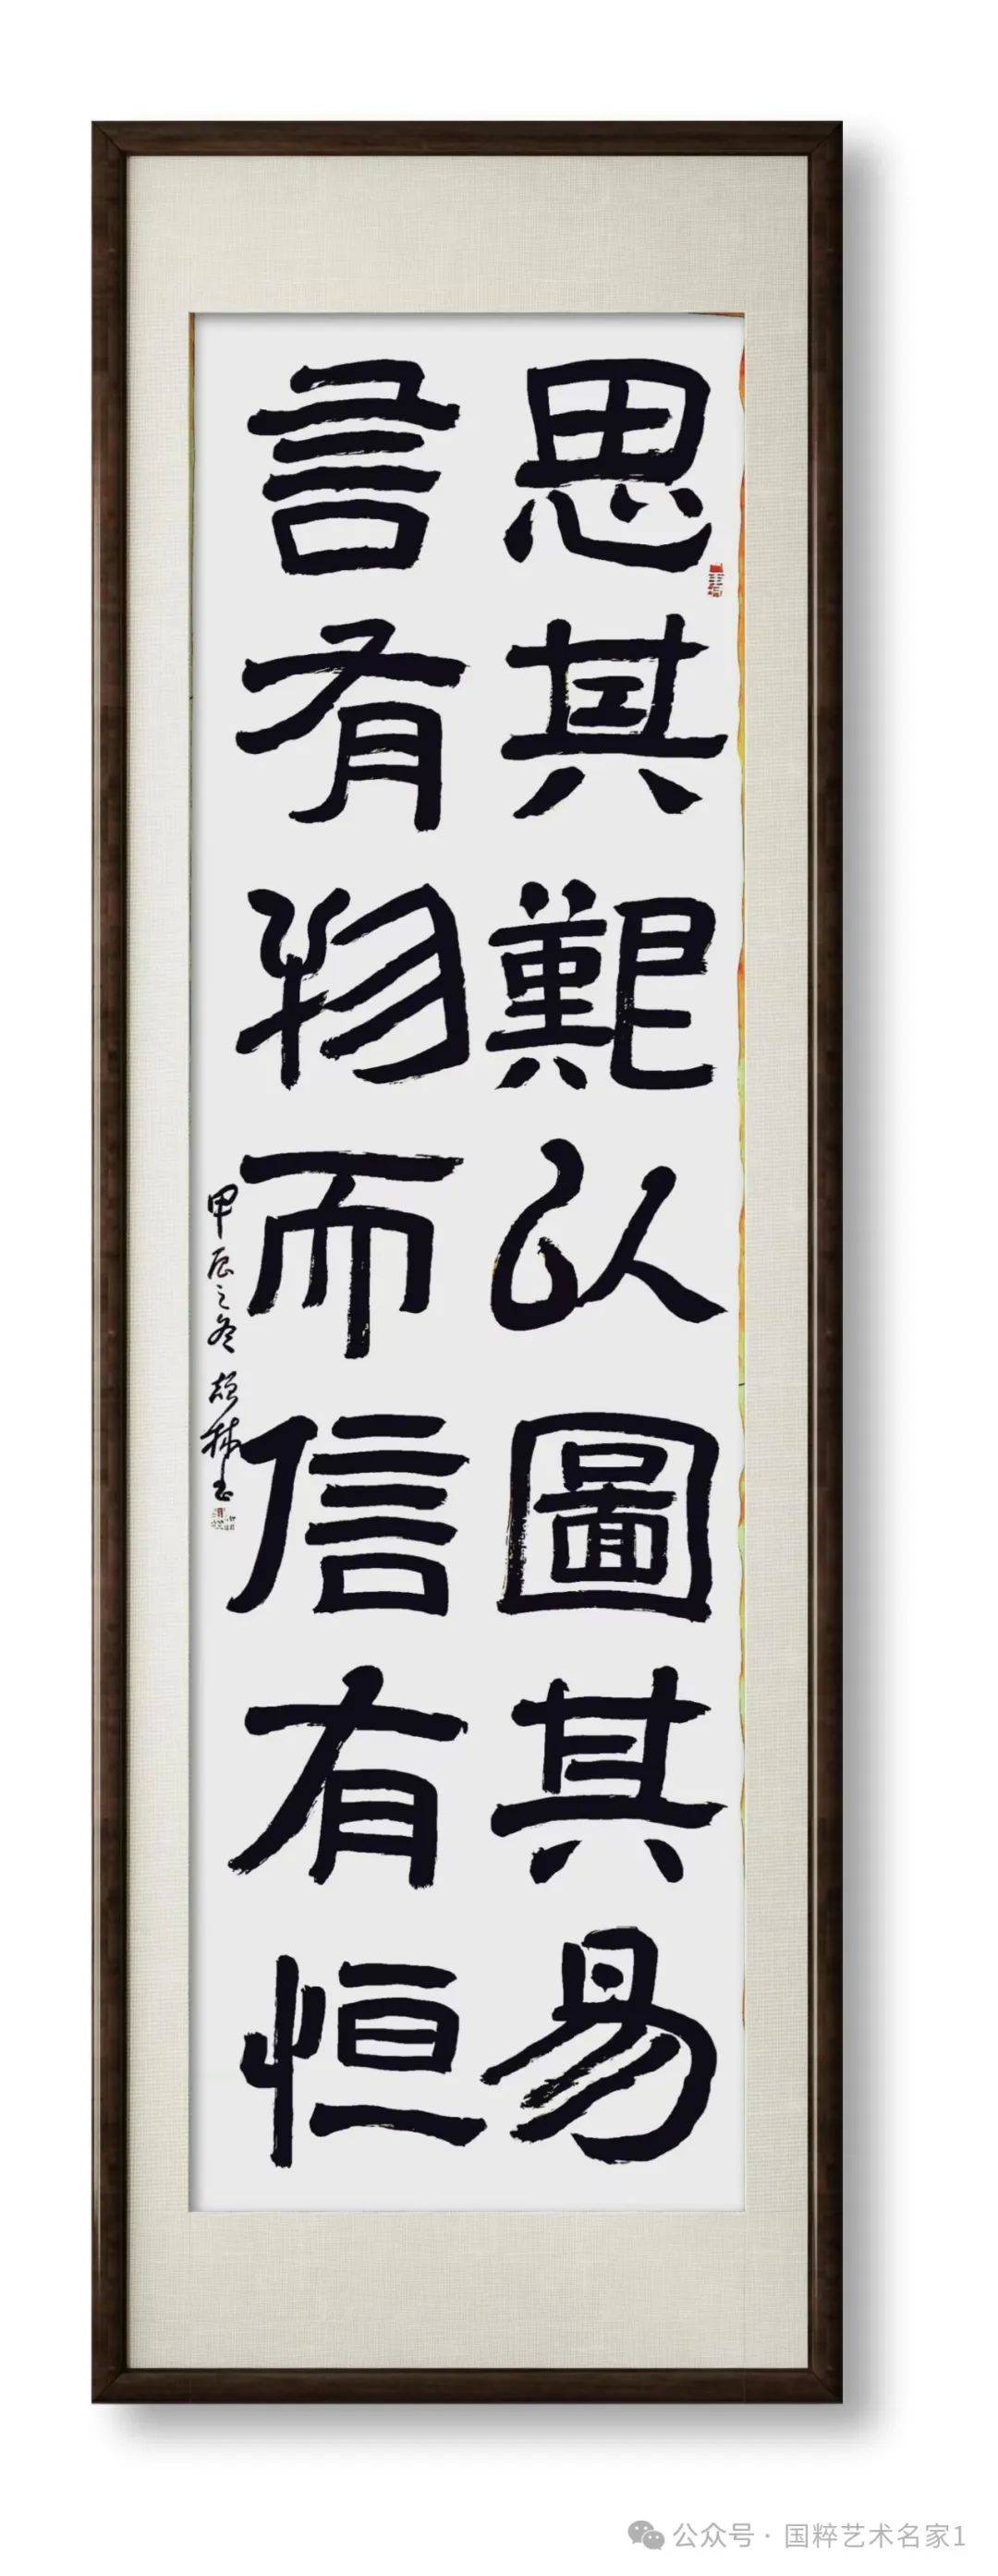 思其艱以圖其易
言有物而信有恒
甲辰之冬
公众号·国粹艺术名家1